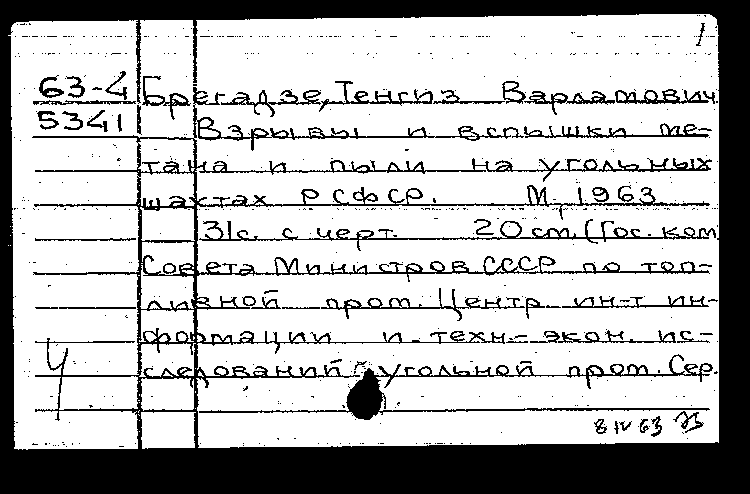 1
63-4 Брегадзе, Тенгиз Варламович
5341 Взрывы и вспышки ме-
тана и пыли на угольных
шахтах РСФСР. М, 1963
31с. с черт. 20 cm. (Гос. ком
Совета Министров СССР по топ-
ливной пром. Центр. ин-т ин-
формации и техн.-экон. ис-
следований угольной пром. Сер.
Ч
8 IV 63